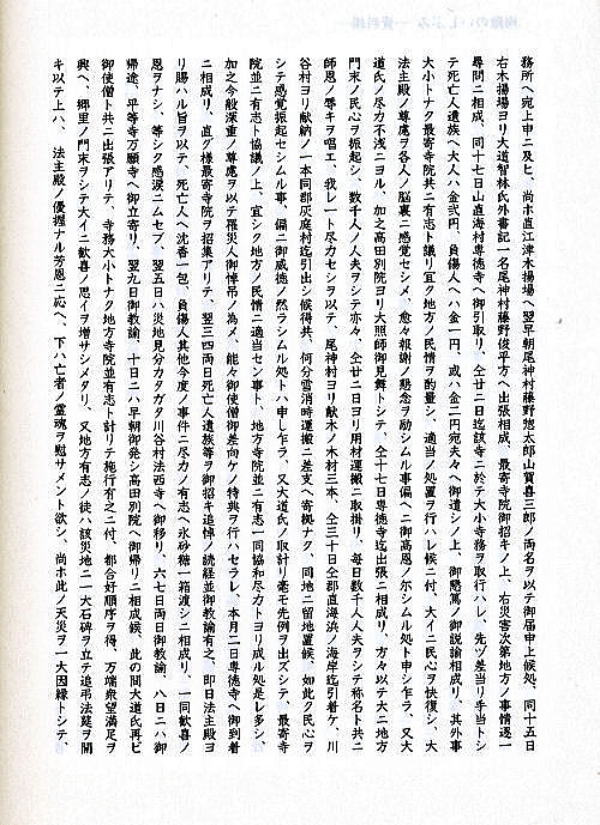 務所ヘ宛上申ニ及ヒ、尚ホ直江津木揚場ヘ翌早朝尾神村藤野惣太郎山賀喜三郎ノ両名ヲ以テ御届申上候処、同十五日
右木揚場ヨリ大道智林氏外書記一名尾神村藤野俊平方ヘ出張相成、最寄寺院御招キノ上、右災害次第地方ノ事情逐一
尋問ニ相成、同十七日山直海村専徳寺ヘ御引取リ、仝廿二日迄該寺ニ於テ大小寺務ヲ取行ハレ、先ヅ差当リ手当トシ
テ死亡人遺族ヘ大人ハ金弐円、負傷人ヘハ金一円、或ハ金二円宛夫々ヘ御遣シノ上、御懇篤ノ御説諭相成リ、其外事
大小トナク最寄寺院共ニ有志ト議リ宜ク地方ノ民情ヲ酌量シ、適当ノ処置ヲ行ハレ候ニ付、大イニ民心ヲ快復シ、大
法主殿ノ尊慮ヲ各人ノ脳裏ニ感覚セシメ、愈々報謝ノ懇念ヲ励シムル事偏ヘニ御高恩ノ尓シムル処ト申シ乍ラ、又大
道氏ノ尽力不浅ニヨル、加之高田別院ヨリ大照師御見舞トシテ、仝十七日専徳寺迄出張ニ相成リ、方々以テ大ニ地方
門末ノ民心ヲ振起シ、数千人ノ人夫ヲシテ亦々、仝廿二日ヨリ用材運搬ニ取掛リ、毎日数千人人夫ヲシテ称名ト共ニ
師恩ノ辱キヲ唱エ、我レート尽力センヲ以テ、尾神村ヨリ献木ノ木材三本、仝三十日仝郡直海浜ノ海岸迄引着ケ、川
谷村ヨリ献納ノ一本同郡灰庭村迄引出シ候得共、何分雪消時運搬ニ差支ヘ寄拠ナク、同地ニ留地置候、如此ク民心ヲ
シテ感覚振起セシムル事、偏ニ御威徳ノ然ラシムル処トハ申し乍ラ、又大道氏ノ取計リ毫モ先例ヲ出ズシテ、最寄寺
院並ニ有志ト協議ノ上、宜シク地方ノ民情ニ適当セン事ト、地方寺院並ニ有志一同協和尽力トヨリ成ル処是レ多シ、
加之今般深重ノ尊慮ヲ以テ罹災人御悼吊ノ為メ、能々御使僧御差向ケノ特典ヲ行ハセラレ、本月二日専徳寺ヘ御到着
ニ相成リ、直グ様最寄寺院ヲ招集アリテ、翌三四両日死亡人遺族等ヲ御招キ追悼ノ読経並御教諭有之、即日法主殿ヨ
リ賜ハル旨ヲ以テ、死亡人ヘ沈香一包、負傷人其他今度ノ事件ニ尽力ノ有志ヘ氷砂糖一箱渡シニ相成リ、一同歓喜ノ
恩ヲナシ、等シク感涙ニムセブ、翌五日ハ災地見分カタガタ川谷村法西寺ヘ御移リ、六七両日御教諭、八日ニハ御
帰途、平等寺万願寺ヘ御立寄リ、翌九日御教諭、十日ニハ早朝御発シ高田別院ヘ御帰リニ相成候、此の間大道氏再ビ
御使僧ト共ニ出張アリテ、寺務大小トナク地方寺院並有志ト計リテ施行有之ニ付、都合好順序ヲ得、万端衆望満足ヲ
興ヘ、郷里ノ門末ヲシテ大イニ歓喜ノ思イヲ増サシメタリ、又地方有志ノ徒ハ該災地ニ一大石碑ヲ立テ追弔法莚ヲ開
キ以テ上ハ、法主殿ノ優握ナル芳恩ニ応ヘ、下ハ亡者ノ霊魂ヲ慰サメント欲シ、尚ホ此ノ天災ヲ一大因縁トシテ、